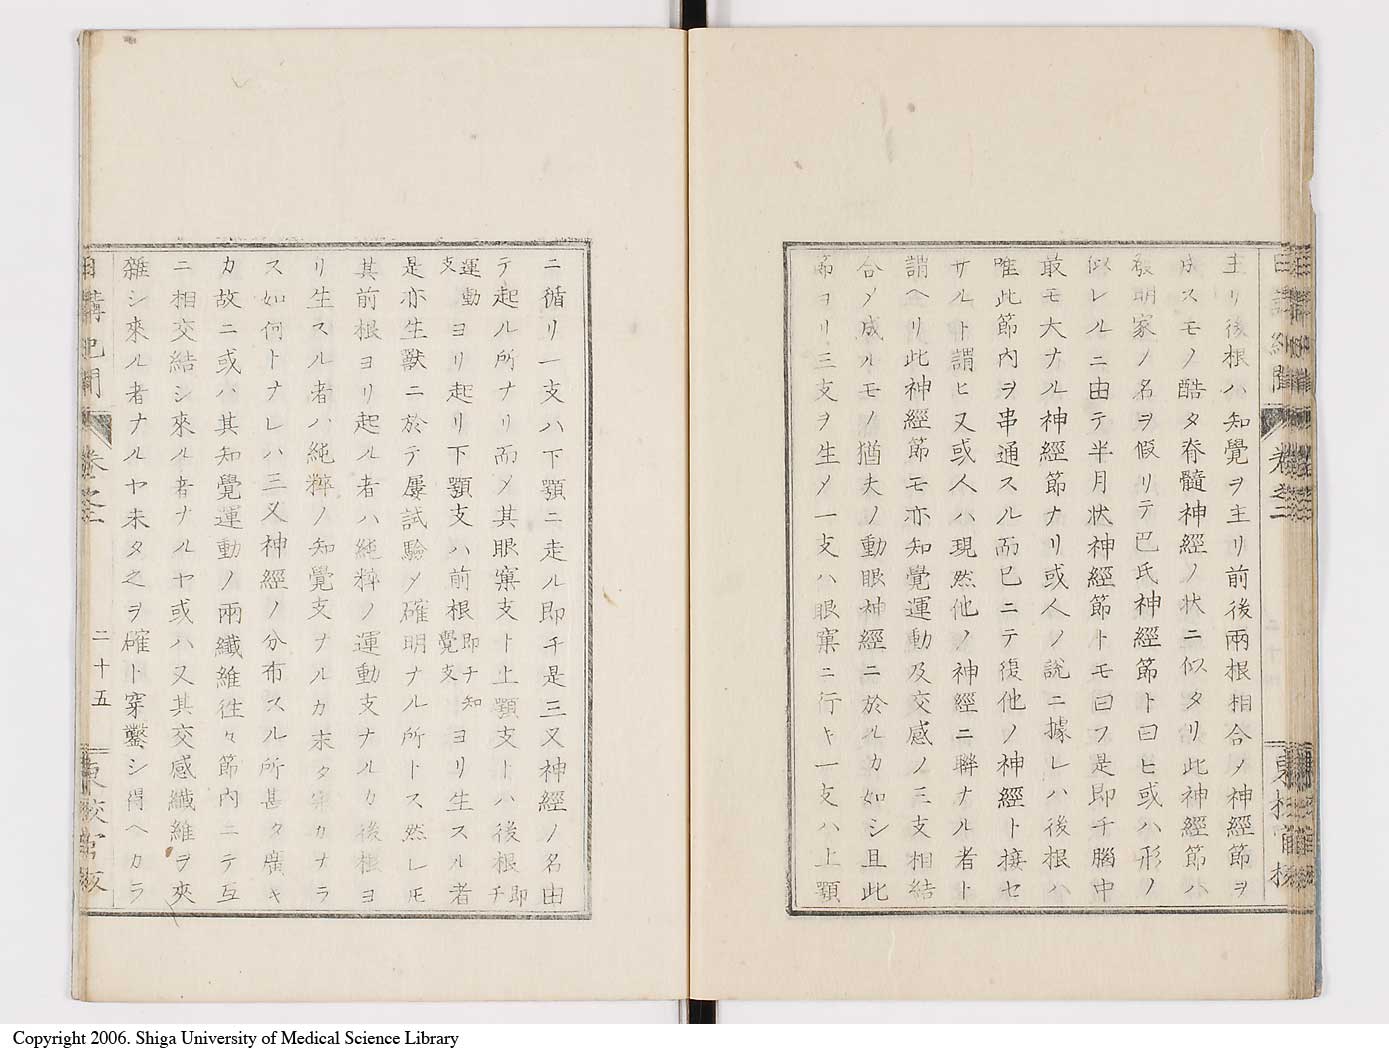 主リ後根ハ知覺ヲ主リ前後兩根相合メ神經節ヲ
成スモノ酷タ脊髓神經ノ状ニ似タリ此神經節ハ
發明家ノ名ヲ假リテ巴氏神經節ト曰ヒ或ハ形ノ
似レルニ由テ半月状神經節トモ曰フ是即チ腦中
最モ大ナル神經節ナリ或人ノ説ニ據レハ後根ハ
唯此節内ヲ串通スル而已ニテ復他ノ神經ト接セ
サルト謂ヒ又或人ハ現然他ノ神經ニ聯ナル者ト
謂ヘリ此神經節モ亦知覺運動及交感ノ三支相結
合メ成ルモノ猶夫ノ動眼神經ニ於ルカ如シ且此
節ヨリ三支ヲ生メ一支ハ眼窠ニ行キ一支ハ上顎
卷之二
ニ循リ一支ハ下顎ニ走ル即チ是三叉神經ノ名由
テ起ル所ナリ而メ其眼窠支ト上顎支トハ後根即チ
運動支ヨリ起リ下顎支ハ前根即チ知覺支ヨリ生スル者
是亦生獸ニ於テ屢試驗メ確明ナル所トス然レ𪜈
其前根ヨリ起ル者ハ純粹ノ運動支ナルカ後根ヨ
リ生スル者ハ純粹ノ知覺支ナルカ未タ審カナラ
ス如何トナレハ三叉神經ノ分布スル所甚タ廣キ
カ故ニ或ハ其知覺運動ノ兩纖維徃々節内ニテ互
ニ相交結シ來ル者ナルヤ或ハ又其交感纖維ヲ夾
雜シ來ル者ナルヤ未タ之ヲ確ト穿鑿シ得ヘカラ
日講記聞
卷之二
二十五
東校官版
Copyright 2006. Shiga University of Medical Science Library